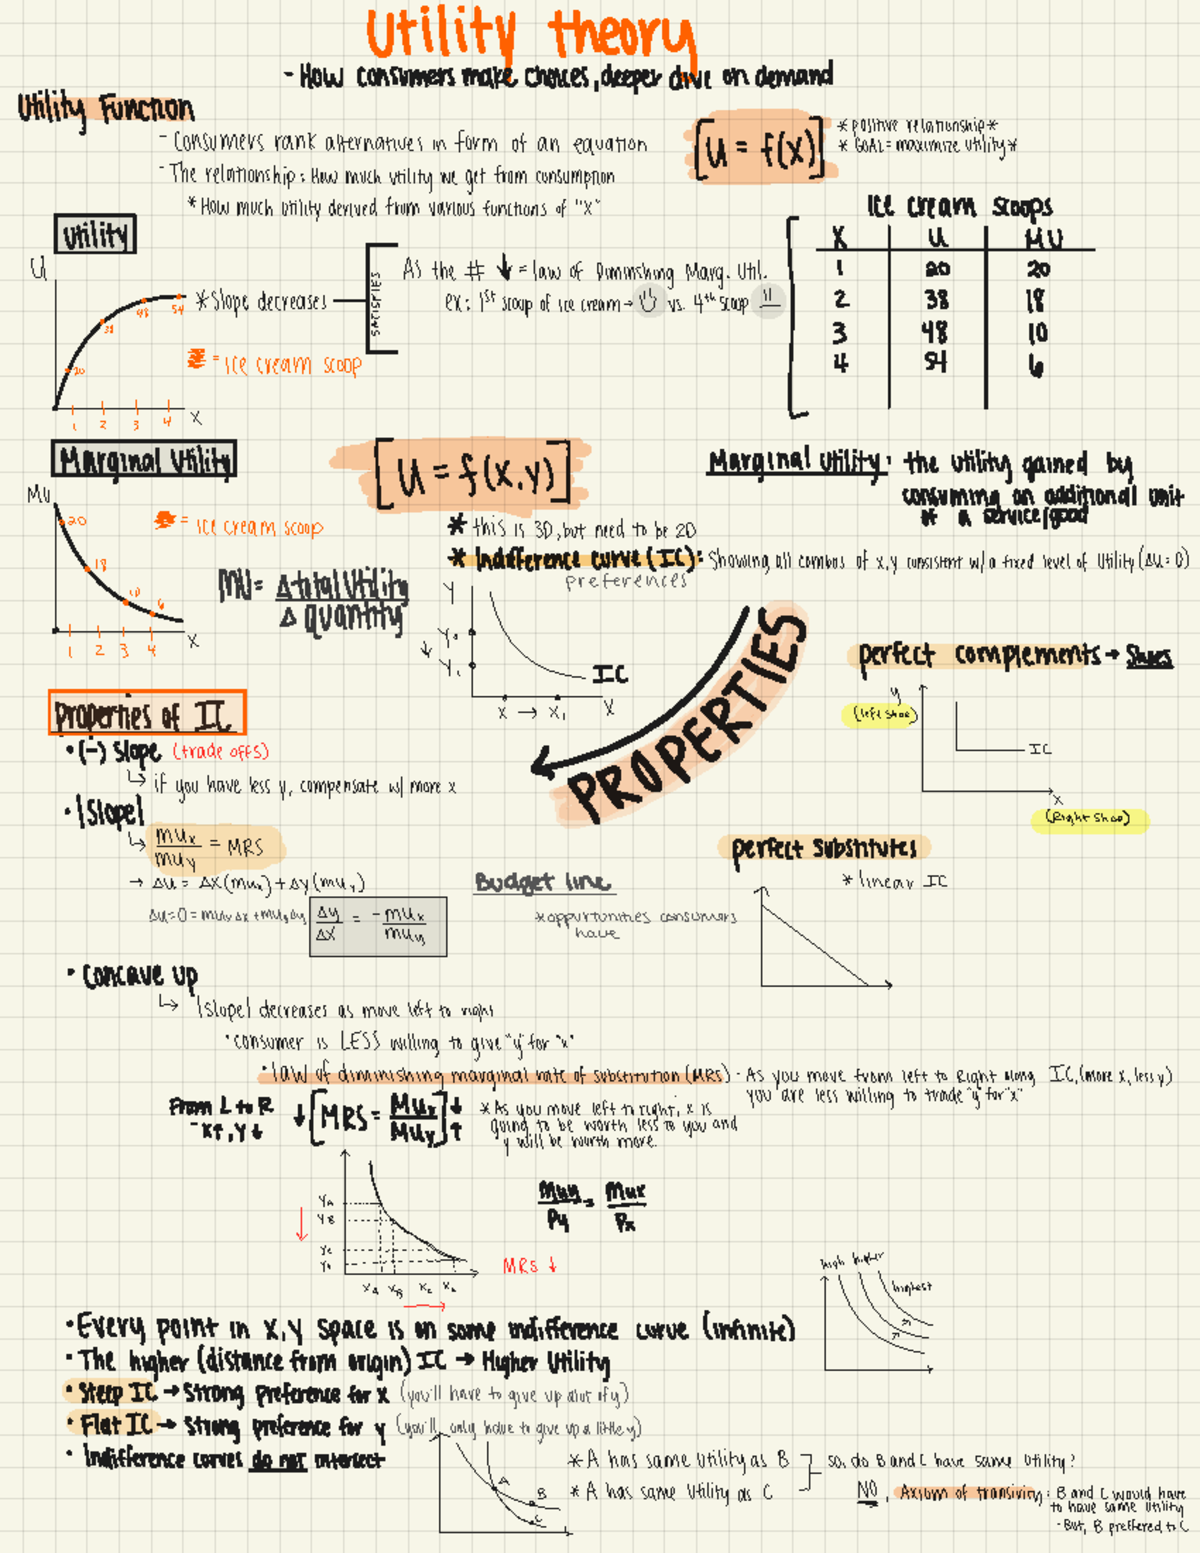 Utility theory
- How consumers make choices, deeper dive on demand
Utility Function
- Consumers rank alternatives in form of an equation
- The relationship: How much utility we get from consumption
* How much utility derived from various functions of "x"
[U = f(x)]
* positive relationship *
* GOAL = maximize utility *
Ice cream scoops
X U MU
1 20 20
2 38 18
3 48 10
4 54 6
Utility
U
20
38
48
54
1 2 3 4 X
* Slope decreases
= Ice cream scoop
SATISFIES
As the # ↓ = law of Diminshing Marg. Util.
ex: 1st scoop of ice cream → vs. 4th scoop
Marginal Utility
Mu
20
18
10
6
1 2 3 4 X
= Ice cream scoop
MU = Δ total Utility
Δ quantity
[U = f(x,y)]
* this is 3D, but need to be 2D
* Indifference curve (IC): Showing all combos of x,y consistent w/ a fixed level of Utility (ΔU = 0)
preferences
Marginal Utility: the utility gained by
consuming an additional unit
of a service/good
Y
Y₀
↓ Y₁
IC
X → X₁ X
PROPERTIES
perfect complements → Shoes
y
(left shoe)
IC
X
(Right Shoe)
Properties of IC
• (-) Slope (trade offs)
↳ if you have less y, compensate w/ more x
• |Slope|
↳ mux
muy = MRS
→ ΔU = ΔX(mux) + Δy(muy)
ΔU = 0 = muxΔx + muyΔy
Δy = -mux
Δx muy
Budget line
* oppurtunities consumers
have
perfect substitutes
* linear IC
• Concave up
↳ |slope| decreases as move left to right
• consumer is LESS willing to give "y" for "x"
• law of diminishing marginal rate of substitution (MRS) - As you move from left to Right along IC, (more x, less y)
you are less willing to trade "y" for "x"
From L to R
- X↑, Y↓
↓[MRS = Mux↓
Muy↑]
* As you move left to right, x is
going to be worth less to you and
y will be worth more.
YA
YB
YC
XA XB XC
MRS ↓
muy = mux
Py Px
high higher
highest
• Every point in x,y space is on some indifference curve (infinite)
• The higher (distance from origin) IC → Higher Utility
• Steep IC → Strong preference for x (you'll have to give up alot of y)
• Flat IC → Strong preference for y (you'll only have to give up a little y)
• Indifference curves do not intersect
A
B
C
* A has same utility as B
* A has same utility as C
so, do B and C have same utility?
NO, Axiom of transivity: B and C would have
to have same utility
- But, B preffered to C